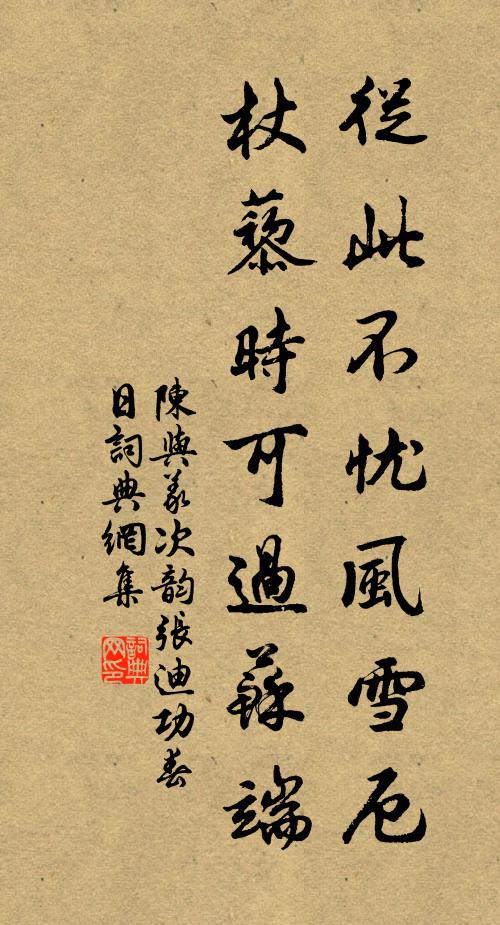 從此不忧風雪厄
杖藜時可過蘇端
陳與义次韵張迪功春
日詞典網集
詞典
网印